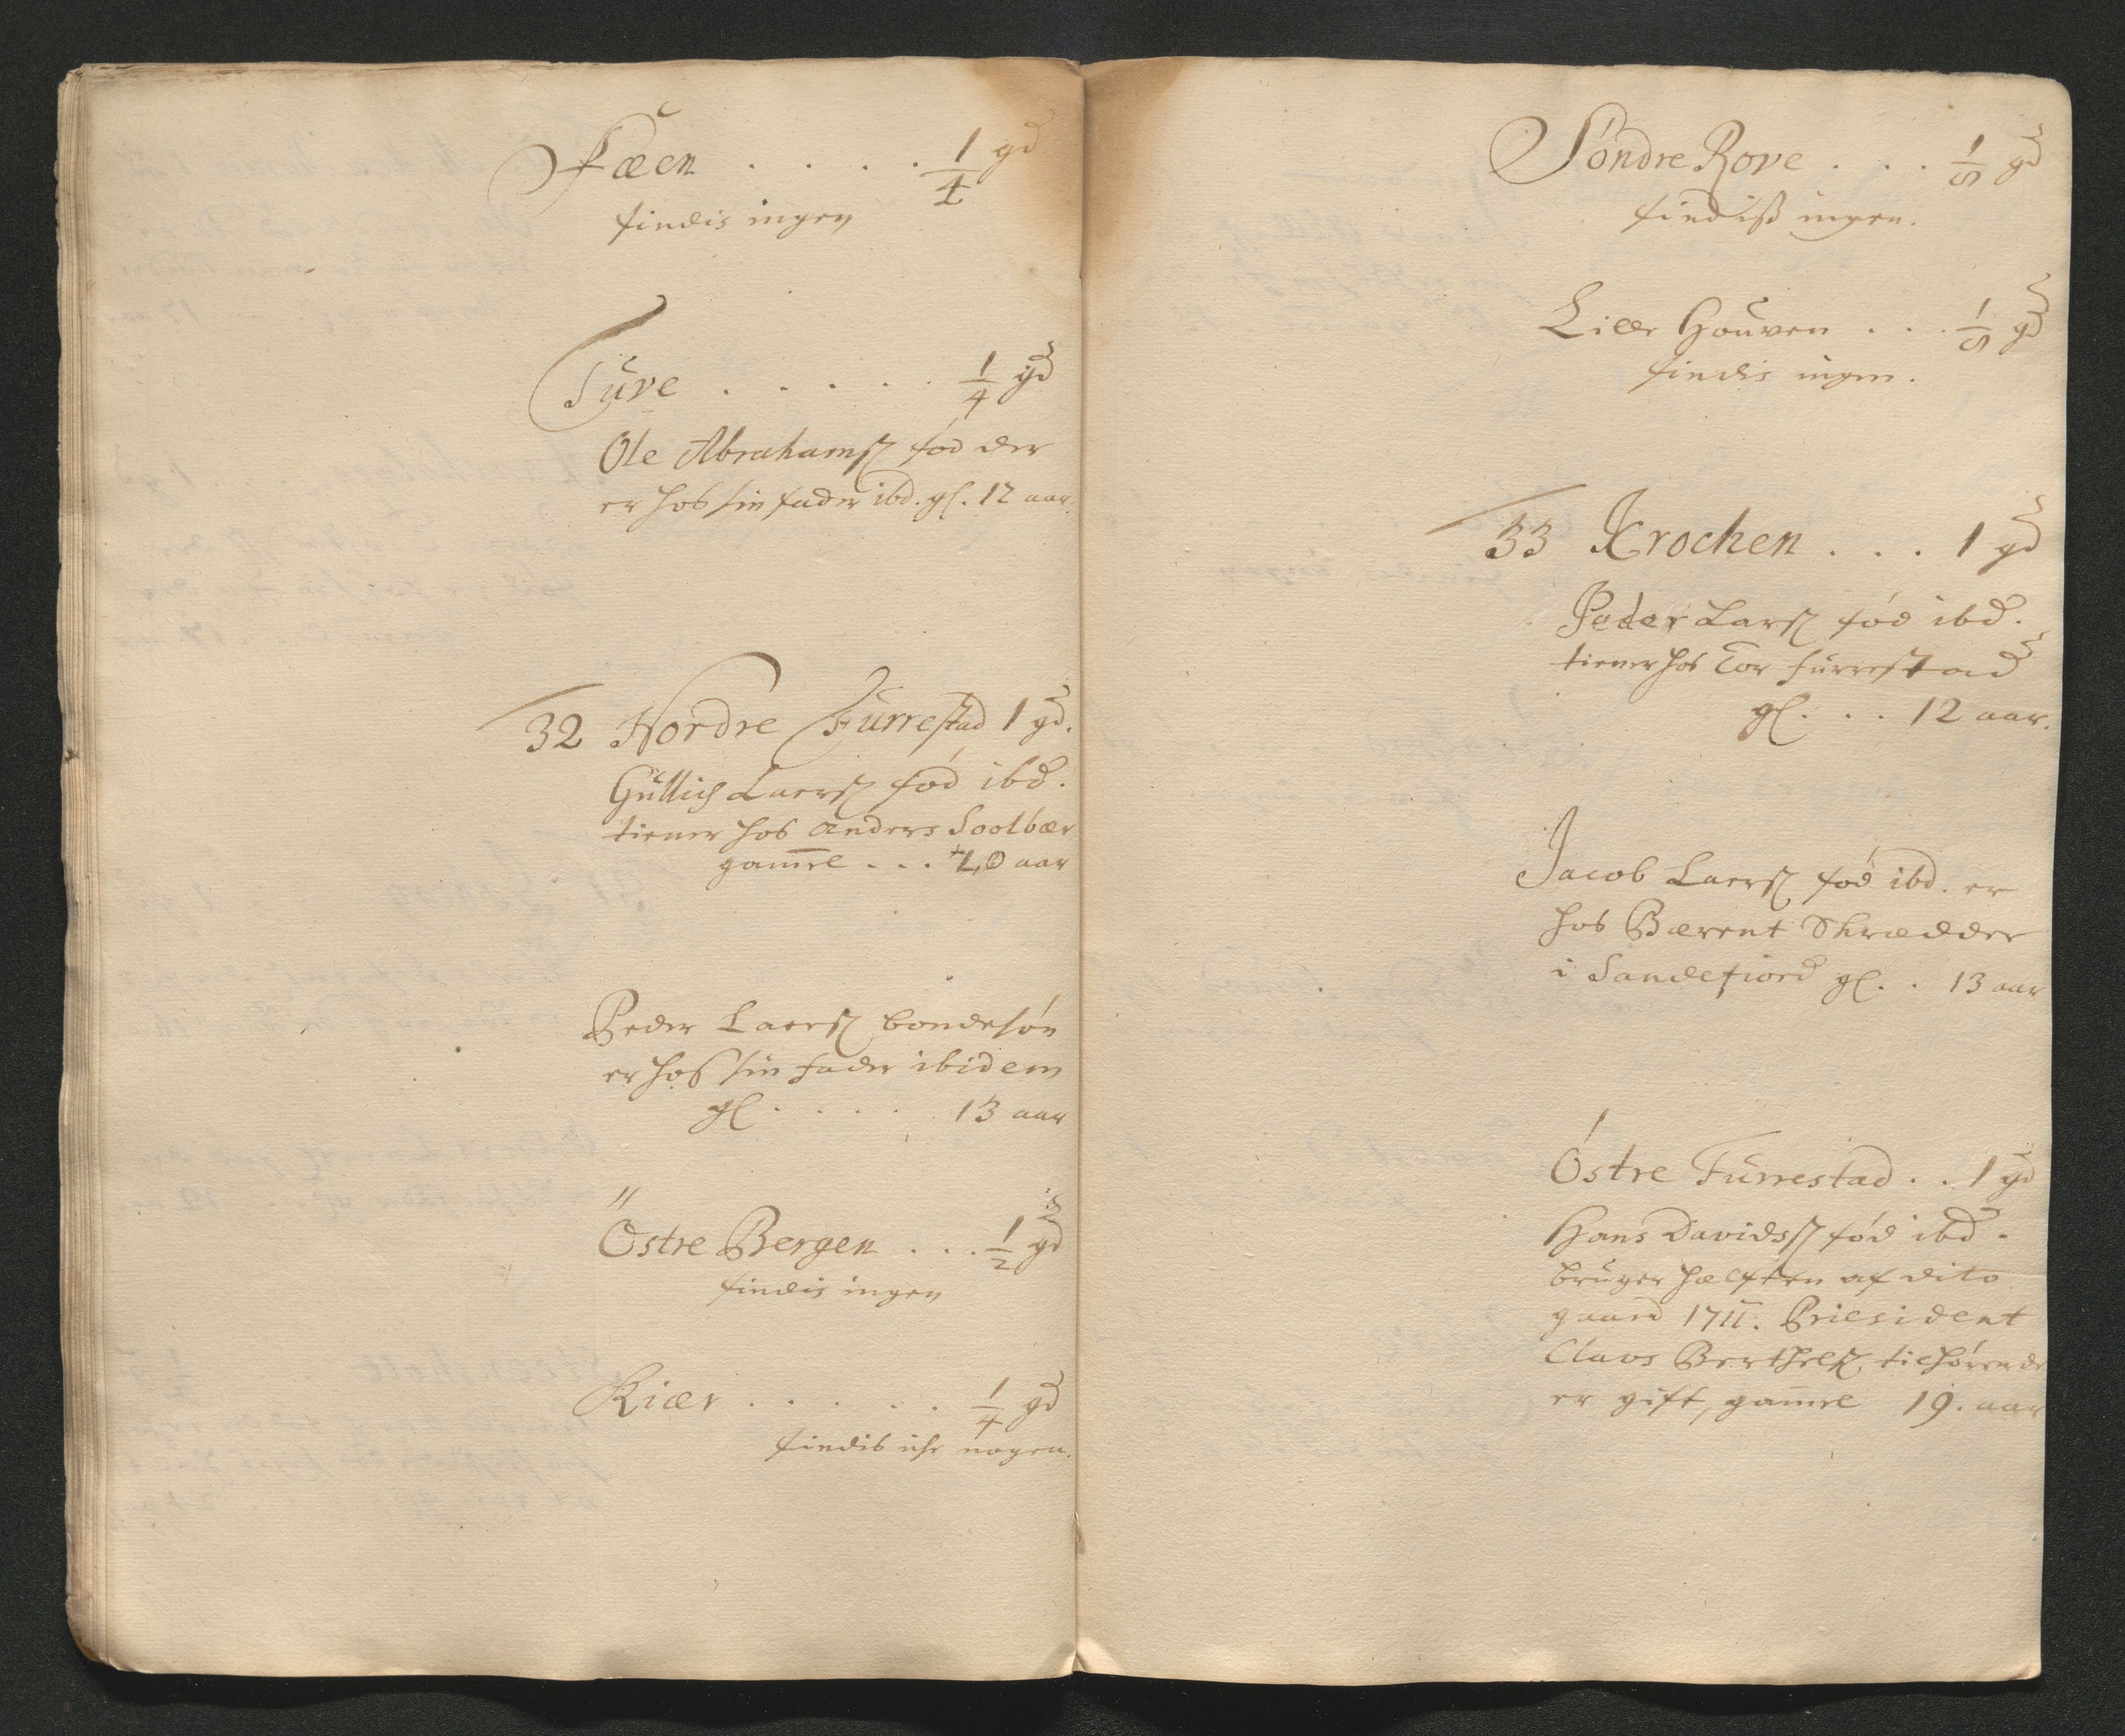 Fæen . . . . . 1/4 gd
findis ingen
Tüve . . . . . . 1/4 gd
Ole Abrahamsz fød der
er hos sin fader ibd. gl. 12 aar.
32 Nordre Fürrestad 1 gd.
Güllich Laersz fød ibd.
tiener hos Anders Soolbær
gamel . . . 20 aar
Peder Laersz bondesøn
er hos sin fader ibidem
gl . . . . . 13 aar
Östre Bergen . . . 1/2 gd
findis ingen
Kiær . . . . . . 1/4 gd
findis iche nogen.
Söndre Rove . . . 1/8 gd
findiß ingen.
Lille Houven . . . 1/8 gd
findis ingen.
33 Krochen . . . 1 gd
Peder Larsz fød ibd.
tiener hos Tor fürrestad
gl. . . 12 aar.
Jacob Laersz fød ibd. er
hos Bærent Skrædder
i Sandefiord gl. . 13 aar
Óstre Fürrestad . . 1 gd
Hans Davidsz fød ibd.
brüger hælften af dito
gaard 1711. Præsident
Claus Berthelsz. tilhørende
er gift, gamel 19. aar